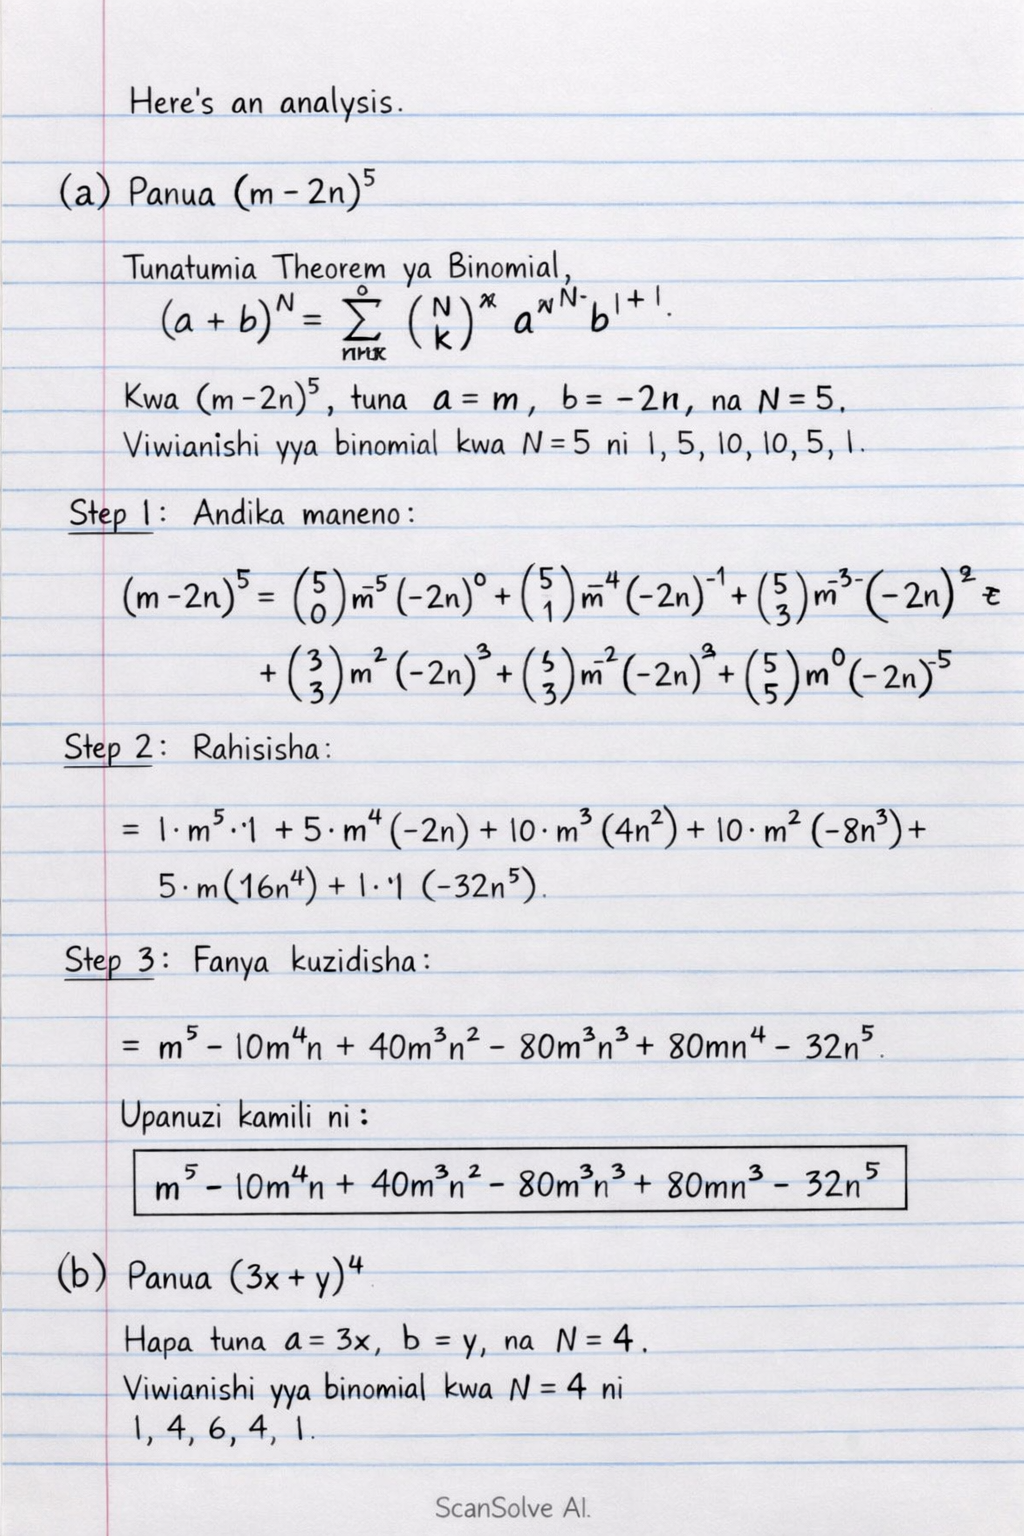 Here's an analysis.
(a) Panua (m - 2n)⁵
Tunatumia Theorem ya Binomial,
(a + b)ᴺ = Σ (N k) a b
Kwa (m - 2n)⁵, tuna a = m, b = -2n, na N = 5.
Viwianishi yya binomial kwa N = 5 ni 1, 5, 10, 10, 5, 1.
Step 1: Andika maneno:
(m - 2n)⁵ = (5 0) m⁻⁵ (-2n)⁰ + (5 1) m⁻⁴ (-2n)⁻¹ + (5 3) m⁻³⁻ (-2n)²
+ (3 3) m² (-2n)³ + (5 3) m⁻² (-2n)³ + (5 5) m⁰ (-2n)⁻⁵
Step 2: Rahisisha:
= 1·m⁵··1 + 5·m⁴ (-2n) + 10·m³ (4n²) + 10·m² (-8n³) +
5·m(16n⁴) + 1·'1 (-32n⁵).
Step 3: Fanya kuzidisha:
= m⁵ - 10m⁴n + 40m³n² - 80m³n³ + 80mn⁴ - 32n⁵.
Upanuzi kamili ni:
m⁵ - 10m⁴n + 40m³n² - 80m³n³ + 80mn³ - 32n⁵
(b) Panua (3x + y)⁴
Hapa tuna a = 3x, b = y, na N = 4.
Viwianishi yya binomial kwa N = 4 ni
1, 4, 6, 4, 1.
ScanSolve AI.